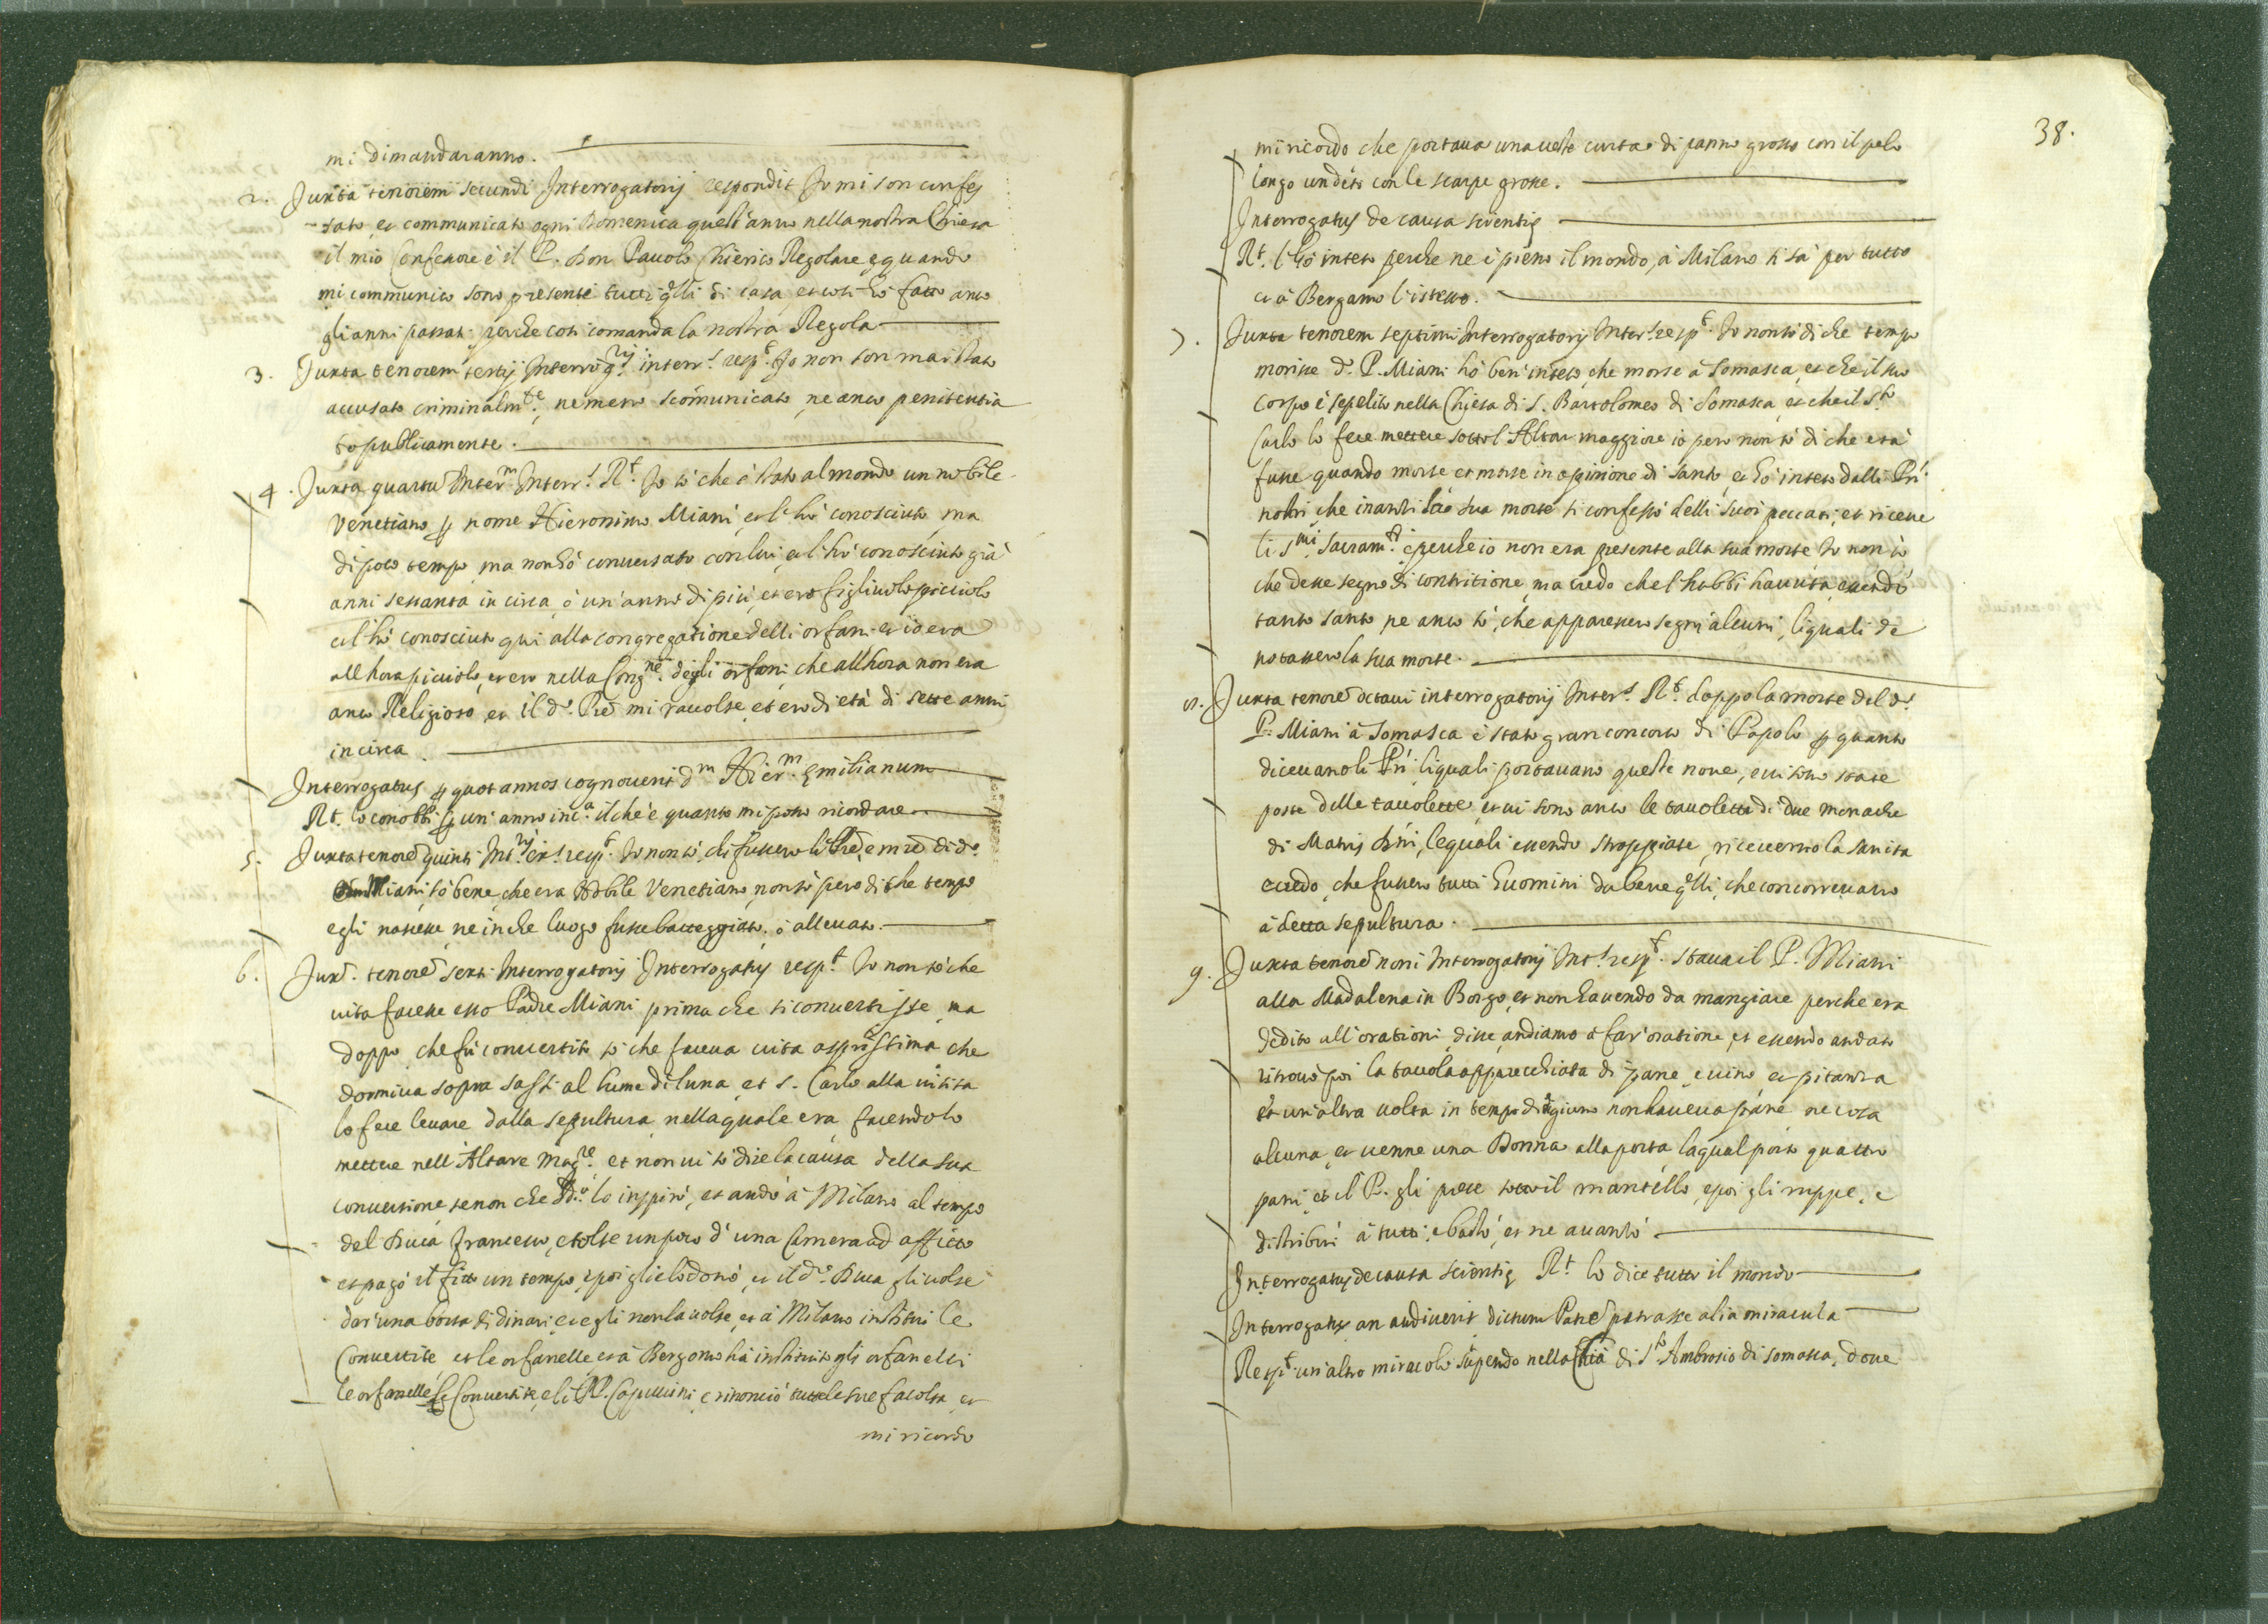 mi dimandaranno.
2. Juxta tenorem secundi Interrogatorij respondit Jo mi son confes
-sato, et communicato ogni Domenica quest'anno nella nostra Chiesa
il mio Confessore è il P. Don Pauolo Chierico Regolare, e quando
mi communico sono presenti tutti q̃lli di casa, et così hò fatto anco
gli anni passati perche così comanda la nostra Regola
3. Juxta tenorem tertij Interrog.rij interr.s resp.t Jo non son mai stato
accusato criminalm.te, ne meno scomunicato, ne anco penitentia
to publicamente.
4. Juxta quartũ Inter.m Interr.s R.t Jo sò che è stato al mondo un nobile
Venetiano p nome Hieronimo Miani, et l'hò conosciuto, ma
di poco tempo, ma non hò conuersato con lui, et l'hò conosciuto già
anni sessanta in circa, ò un'anno di più, et ero figliuolo picciolo
et l'hò conosciuto qui alla congregatione delli orfani et io era
all'hora picciolo, et ero nella Cong.ne degli orfani, che all'hora non era
anco Religioso, et il d.o Prẽ mi raccolse, et ero di età di sette anni
in circa
Interrogatus p quot annos cognouerit d.m Hier.m Emilianum
R.t lo conobbi p un'anno in c.a il che è quanto mi posso ricordare
5. Juxta tenorẽ quinti Int.rij int.s resp.t Jo non sò, chi fussero li Prẽ, e mrẽ di d.o
Miani, sò bene, che era Nobile Venetiano, non sò però di che tempo
egli nascesse, ne in che luogo fusse batteggiato, ò alleuato.
6. Jux.a tenorẽ sexti Interrogatorij Interrogatus resp.t Jo non sò che
uita facesse esso Padre Miani prima che si conuertisse, ma
doppo, che fù conuertito sò che faceua uita asprissima che
dormiua sopra sassi al lume di luna, et S. Carlo alla uisita
lo fece leuare dalla sepultura, nella quale era, facendolo
mettere nell'Altare mag.re et non ui sò dire la causa della sua
conuersione, se non che Dio lo inspirò, et andò à Milano al tempo
del Duca Francesco, e tolse un poco d'una Camera ad affitto
et pagò il fitto un tempo, e poi glielo donò, et il d.o Duca gli uolse
dar'una borsa di dinari, et egli non la uolse, et à Milano instituì le
Conuertite, et le orfanelle et à Bergomo hà instituito gli orfanelli
le orfanelle, le Conuertite, e li RR. Capuccini, e rinonciò tutte le sue facoltà, et
mi ricordo
38.
mi ricordo che portaua una ueste curta di panno grosso con il pelo
longo uestito con le scarpe grosse.
Interrogatus de causa scientię
R.t l'hò inteso perche ne è pieno il mondo, à Milano si sà per tutto
et à Bergamo l'istesso.
7. Juxta tenorem septimi Interrogatorij Inter.s resp.t Jo non sò di che tempo
morisse d.o P. Miani hò ben'inteso, che morse à Somasca, et che il suo
corpo è sepelito nella Chiesa di S. Bartolomeo di Somasca, et che il S.to
Carlo lo fece mettere sotto l'Altar maggiore io però non sò di che età
fusse quando morse et morse in opinione di santo, et hò inteso dalli Pri
nostri che inanti la sua morte si confessò delli suoi peccati, et riceue
li S.mi Sacram.ti, e perche io non era presente alla sua morte Jo non sò
che desse segno di contritione, ma credo che l'habbi hauuta, essendo
tanto santo ne anco sò, che apparessero segni alcuni, li quali de
notassero la sua morte.
8. Juxta tenorẽ octaui interrogatorij Inter.s R.t doppo la morte del d.o
P. Miani à Somasca è stato gran concorso di Popolo p quanto
diceuano li Pri, li quali portauano queste noue, e ui sono state
poste delle tauolette, et ui sono anco le tauolette di due monache
di Matris Dñi, le quali essendo stroppiate, riceuerno la sanità
e credo, che fussero tutti huomini da bene q̃lli, che concorreuano
à detta sepultura.
9. Juxta tenorẽ noni Interrogatorij Int.s resp.t Staua il P. Miani
alla Madalena in Borgo, et non hauendo da mangiare perche era
dedito all'orationi, disse, andiamo à far'oratione, et essendo andato
ritrouò poi la tauola apparecchiata di pane, e uino, et pitanza
et un'altra uolta in tempo di digiuno non haueua pane ne cosa
alcuna, et uenne una Donna alla porta, la qual portò quattro
pani, et il P. gli pose sotto il mantello, e poi gli ruppe, e
distribuì à tutti, e bastò, et ne auanzò
Interrogatus de causa scientię R.t lo dice tutto il mondo
Interrogatus an audiuerit dictum Patrẽ patrasse alia miracula
Resp.t un'altro miracolo stupendo nella Chia di S.to Ambrosio di Somasca, doue